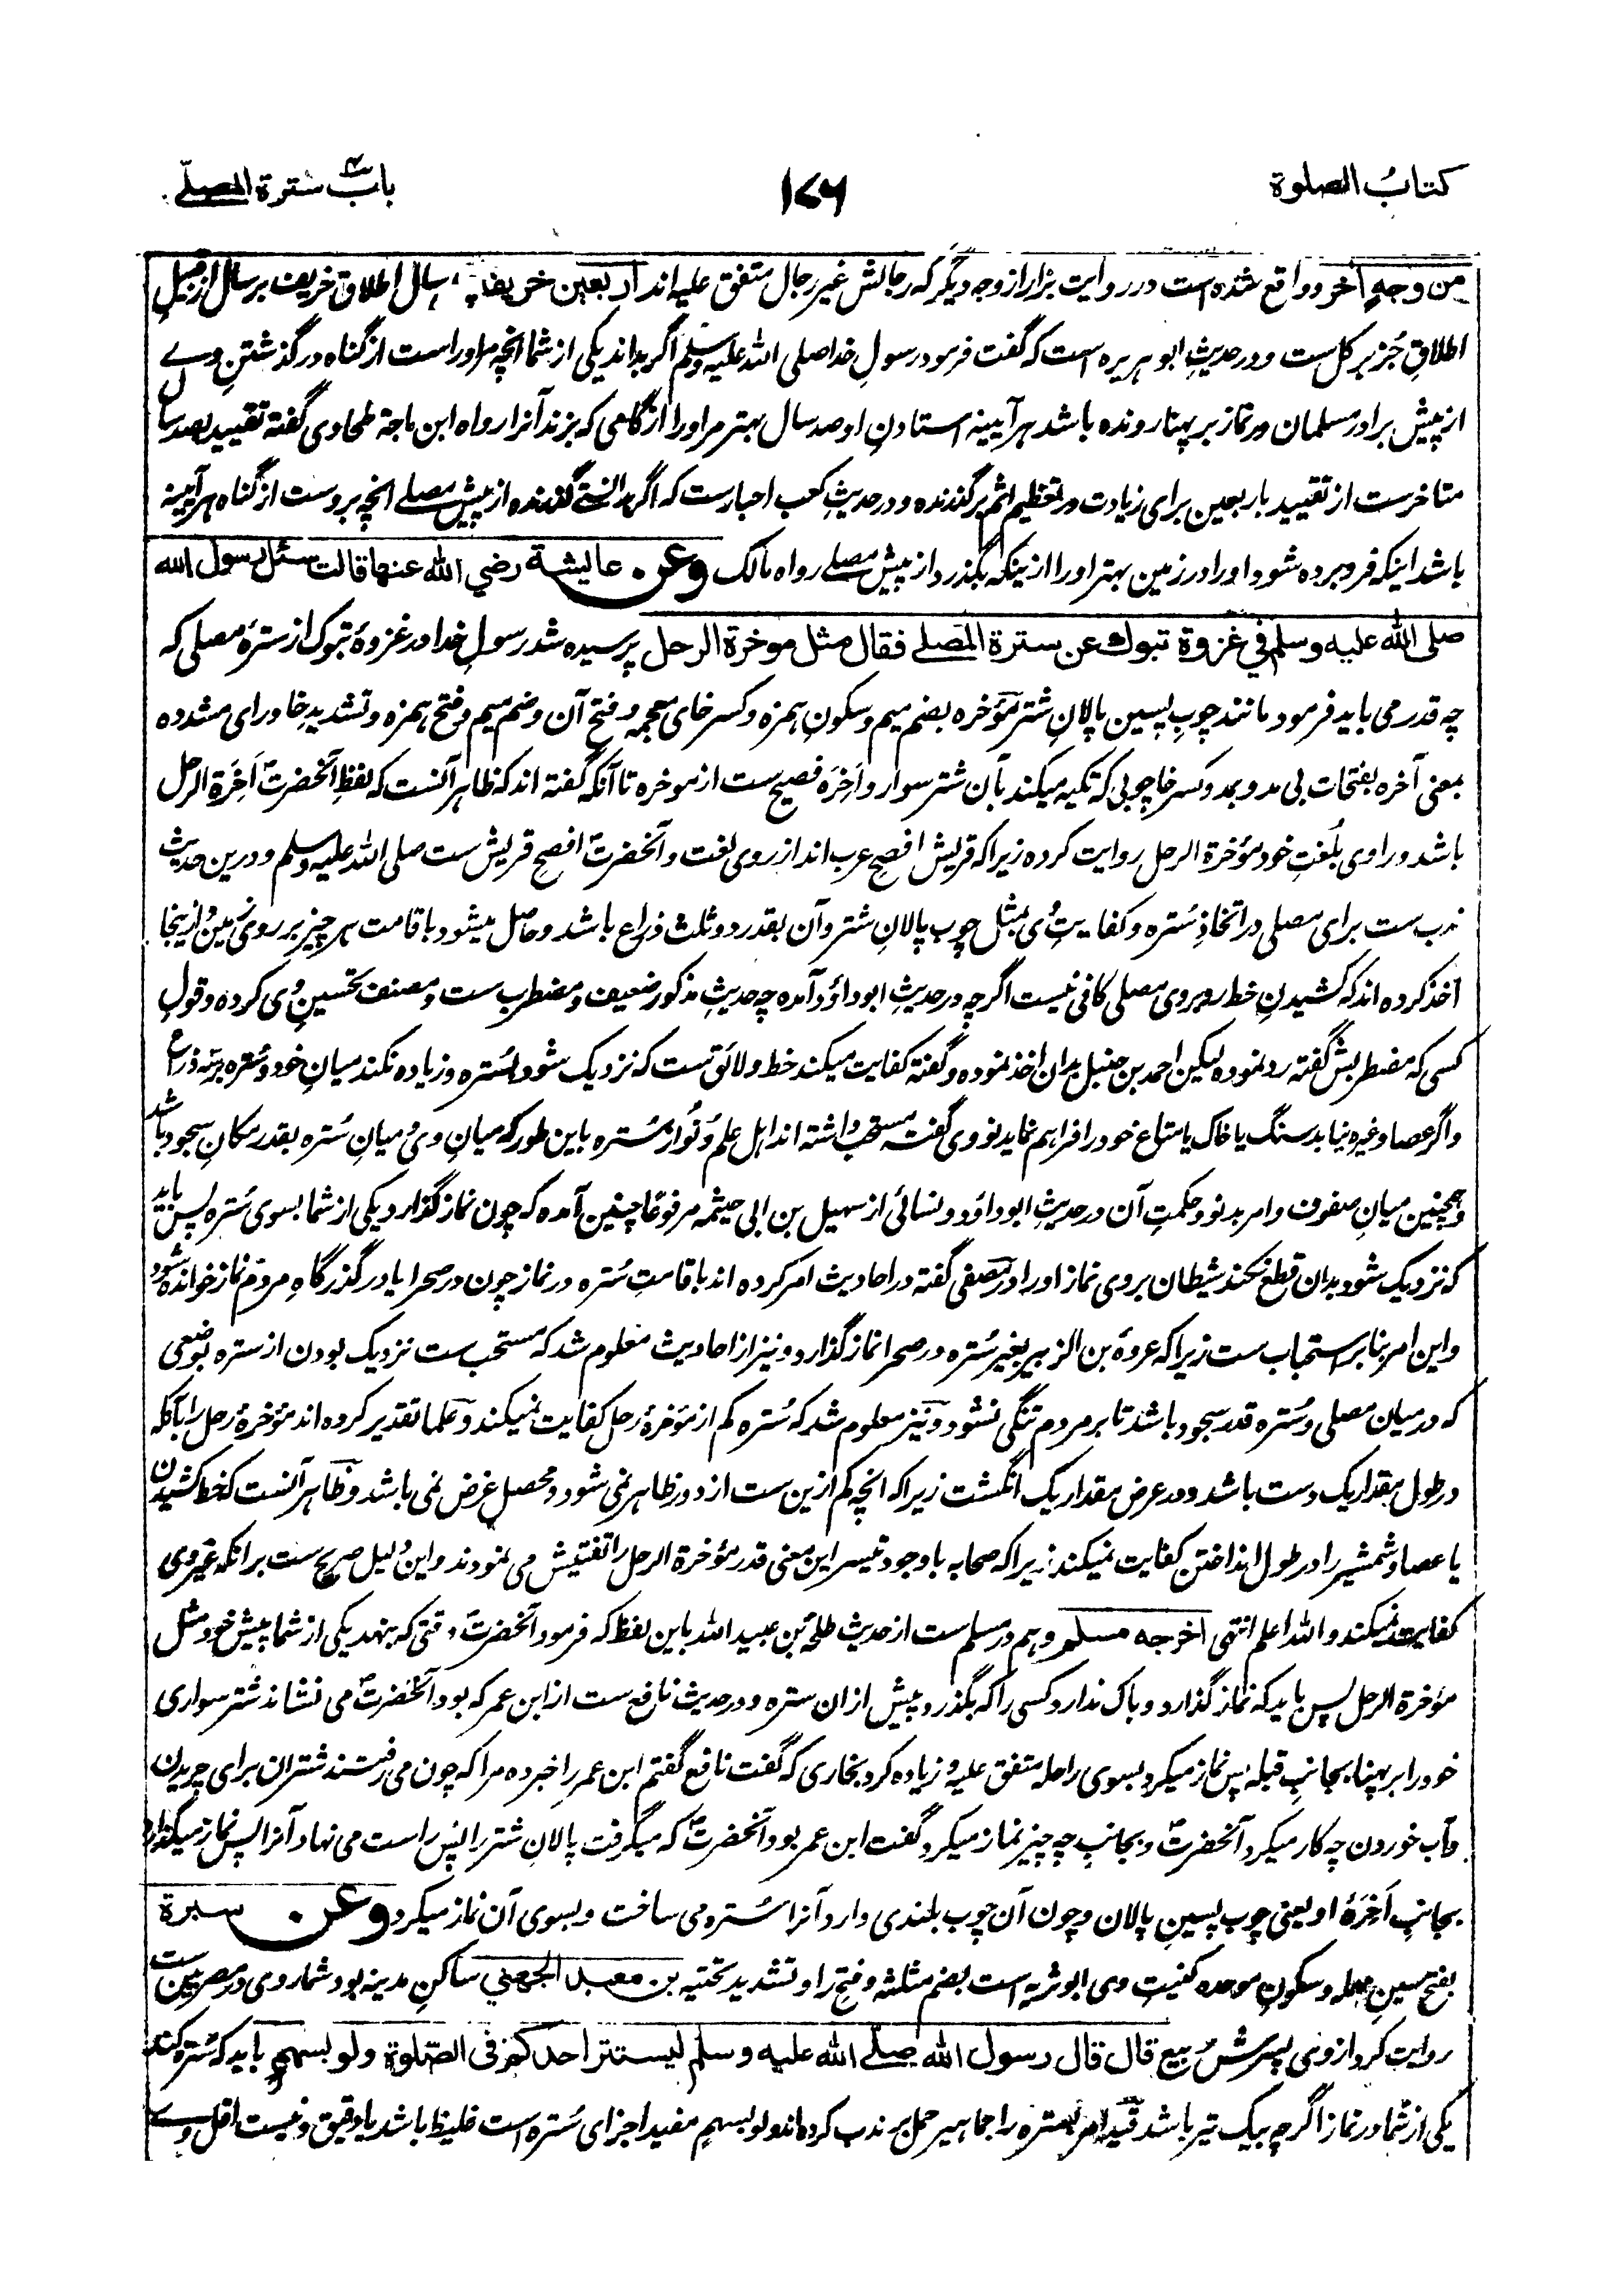 کتاب الصلوة
۱۷۶
باب سترة المصلّے
من وجهٍ آخر و واقع شده است در روایت بزار از وجه دیگر که رجالش غیر رجال متفق علیه اند اربعین خریفا سال اطلاق خریف بر سال از قبیلِ
اطلاقِ جُز بر کل ست و در حدیثِ ابو هریره است که گفت فرمود رسولِ خدا صلی الله علیه وسلم اگر بداند یکی از شما انچه مر او راست از گناه در گذشتنِ وے
از پیش برادر مسلمان در نماز بر پهنا رونده باشد هر آیینه استادنِ او صد سال بهتر مر او را از گامی که بزند آنرا رواه ابن ماجة طحاوی گفته تقیید بصد سال
متاخرست از تقیید باربعین برای زیادت در تعظیم اثم بر گذرنده و در حدیثِ کعب احبارست که اگر دانستے گذرنده از پیش مصلے انچه بروست از گناه هر آیینه
باشد اینکه فرو برده شود او را در زمین بهتر او را از ینکه بگذرد از پیش مصلے رواه مالک وعن عایشة رضي الله عنها قالت سئل رسول الله
صلی الله علیه وسلم في غزوة تبوك عن سترة المصلے فقال مثل موخرة الرحل پرسیده شد رسولِ خدا در غزوهٔ تبوک از سترهٔ مصلی که
چه قدر می باید فرمود مانند چوبِ پسین پالانِ شتر مؤخره بضم میم و سکونِ همزه و کسر خای معجمه و فتح آن و ضم میم و فتح همزه و تشدیدِ خا و رای مشدده
بمعنی آخره بفتحات بی مد و بمد و کسر خا چوبی که تکیه میکند بآن شتر سوار و اَخِرَه فصیح ست از موخره تا آنکه گفته اند که ظاهر آنست که لفظِ آنحضرتؐ اَخِرَة الرحل
باشد و راوی بلُغتِ خود مؤخرة الرحل روایت کرده زیرا که قریش افصحِ عرب اند از روی لغت و آنحضرتؐ افصحِ قریش ست صلی الله علیه وسلم و درین حدیث
ندب ست برای مصلی در اتخاذِ سُتره و کفایتِ وی بمثل چوب پالانِ شتر و آن بقدر دو ثلث ذراع باشد و حاصل میشود باقامت هر چیز بر روی زمین و ازینجا
اخذ کرده اند که کشیدنِ خط روبروی مصلی کافی نیست اگر چه در حدیثِ ابو داؤد آمده چه حدیثِ مذکور ضعیف و مضطرب ست و مصنف تحسینِ وی کرده و قولِ
کسی که مضطربش گفته رد نموده لیکن احمد بن حنبل بدان اخذ نموده و گفته کفایت میکند خط و لائق ست که نزدیک شود بسُتره و زیاده نکند میانِ خود و سُتره بر سه ذراع
و اگر عصا و غیره نیابد سنگ یا خاک یا متاع خود را فراهم نماید نووی گفته مستحب داشته اند اهل علم دُنُو از سُتره باین طور که میانِ وی و میانِ سُتره بقدر مکانِ سجود باشد
و همچنین میانِ صفوف و امر بدنو و حکمتِ آن در حدیثِ ابوداؤد و نسائی از سهیل بن ابی حیثمه مرفوعًا چنین آمده که چون نماز گذارد یکی از شما بسوی سُتره پس باید
که نزدیک شود بدان قطع نکند شیطان بروی نماز او را و در مصفی گفته در احادیث امر کرده اند باقامتِ سُتره در نماز چون در صحرا یا در گذرگاهِ مردم نماز خوانده شود
و این امر بنا بر استحباب ست زیرا که عروهٔ بن الزبیر بغیر سُتره در صحرا نماز گذارد و نیز از احادیث معلوم شد که مستحب ست نزدیک بودن از ستره بوضعی
که در میان مصلی و سُتره قدر سجود باشد تا بر مردم تنگی نشود و نیز معلوم شد که سُتره کم از مؤخرهٔ رحل کفایت نمیکند و علما تقدیر کرده اند مؤخرهٔ رحل را بآنکه
در طول بمقدار یک دست باشد و در عرض مقدار یک انگشت زیرا که انچه کم ازین ست از دور ظاهر نمی شود و محصلِ غرض نمی باشد و ظاهر آنست که خط کشیدن
یا عصا و شمشیر را در طول انداختن کفایت نمیکند زیرا که صحابه با وجود تیسر این معنی قدر مؤخرة الرحل را تفتیش می نمودند و این دلیل صریح ست بر انکه غیر وی
کفایت نمیکند و الله اعلم انتهی اخرجه مسلم و هم در مسلم ست از حدیث طلحه بن عبید الله باین لفظ که فرمود آنحضرتؐ وقتی که بنهد یکی از شما پیش خود مثل
مؤخرة الرحل پس باید که نماز گذارد و باک ندارد کسی را که بگذرد پیش ازان ستره و در حدیث نافع ست از ابن عمر که بود آنحضرتؐ می نشاند شتر سواری
خود را بر پهنا بجانبِ قبله پس نماز میکرد بسوی راحله متفق علیه و زیاده کرد بخاری که گفت نافع گفتم ابن عمر را خبر ده مرا که چون می رفتند شتران برای چریدن
و آب خوردن چه کار میکرد آنحضرتؐ و بجانبِ چه چیز نماز میکرد گفت ابن عمر بود آنحضرتؐ که میگرفت پالانِ شتر را پس راست می نهاد آنرا پس نماز میگذارد
بجانبِ اَخِرَهٔ او یعنی چوب پسینِ پالان و چون آن چوب بلندی دارد آنرا سُتره می ساخت و بسوی آن نماز میکرد وعن سبرة
بفتح سینِ مهمله و سکونِ موحده کنیتِ وی ابو ثریه است بضم مثلثه و فتح را و تشدید تحتیه بن معبد الجهني ساکنِ مدینه بود شمار وی در مصریین ست
روایت کرد از وی پسرش ربیع قال قال رسول الله صلّے الله علیه وسلم لیستتر احدکم فی الصّلوة ولو بسهم باید که سُتره کند
یکی از شما در نماز اگر چه بیک تیر باشد امر بستره را جماهیر حمل بر ندب کرده اند و لو بسهم مفیدِ اجزای سُتره است غلیظ باشد یا دقیق و نیست اقل وے